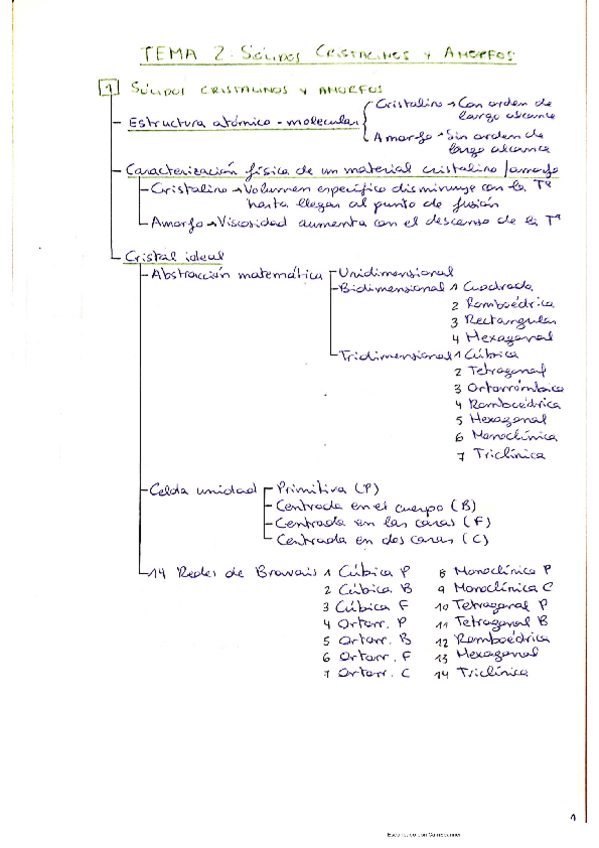 TEMA 2: SÓLIDOS CRISTALINOS Y AMORFOS
1 SÓLIDOS CRISTALINOS Y AMORFOS
- Estructura atómico-molecular
Cristalino → Con orden de
largo alcance
Amorfo → Sin orden de
largo alcance
- Caracterización física de un material cristalino/amorfo
- Cristalino → Volumen específico disminuye con la Tª
hasta llegar al punto de fusión
- Amorfo → Viscosidad aumenta con el descenso de la Tª
- Cristal ideal
- Abstracción matemática
- Unidimensional
- Bidimensional 1 Cuadrada
2 Romboédrica
3 Rectangular
4 Hexagonal
- Tridimensional 1 Cúbica
2 Tetragonal
3 Ortorrómbica
4 Romboédrica
5 Hexagonal
6 Monoclínica
7 Triclínica
- Celda unidad
- Primitiva (P)
- Centrada en el cuerpo (B)
- Centrada en las caras (F)
- Centrada en dos caras (C)
- 14 Redes de Bravais 1 Cúbica P 8 Monoclínica P
2 Cúbica B 9 Monoclínica C
3 Cúbica F 10 Tetragonal P
4 Ortorr. P 11 Tetragonal B
5 Ortorr. B 12 Romboédrica
6 Ortorr. F 13 Hexagonal
7 Ortorr. C 14 Triclínica
1
Escaneado con CamScanner